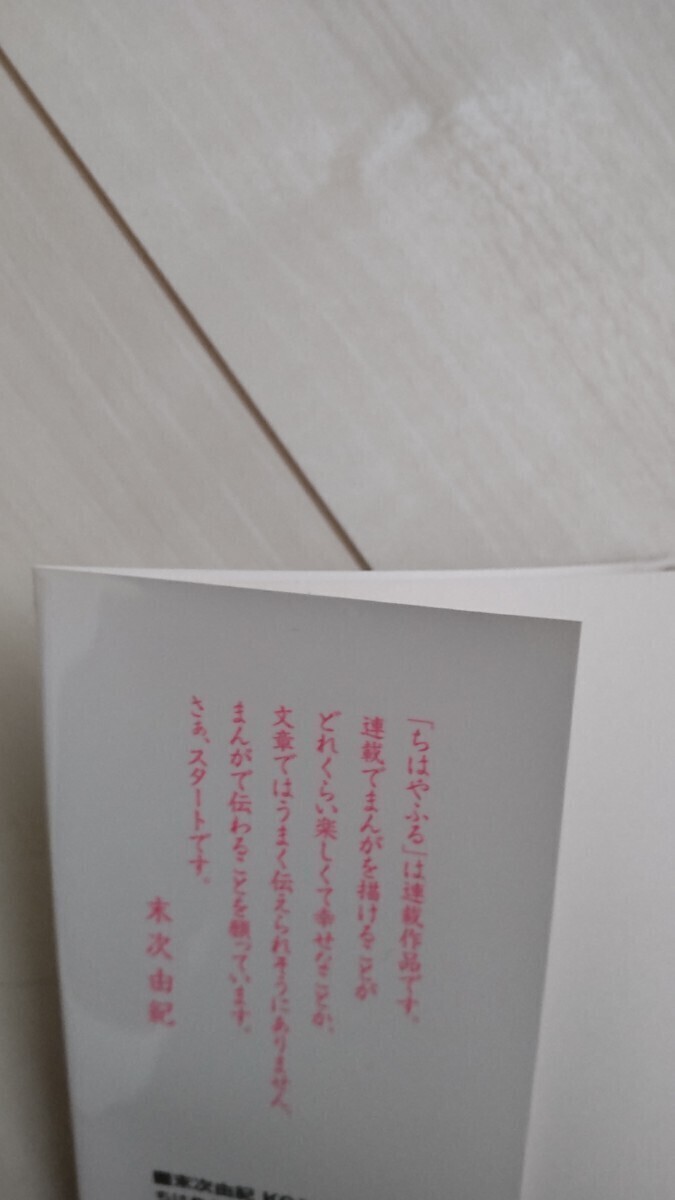 「ちはやふる」は連載作品です。
連載でまんがを描けることが
どれくらい楽しくて幸せなことか、
文章ではうまく伝えられそうにありません。
まんがで伝わることを願っています。
さぁ、スタートです。
末次由紀
■末次由紀 KC